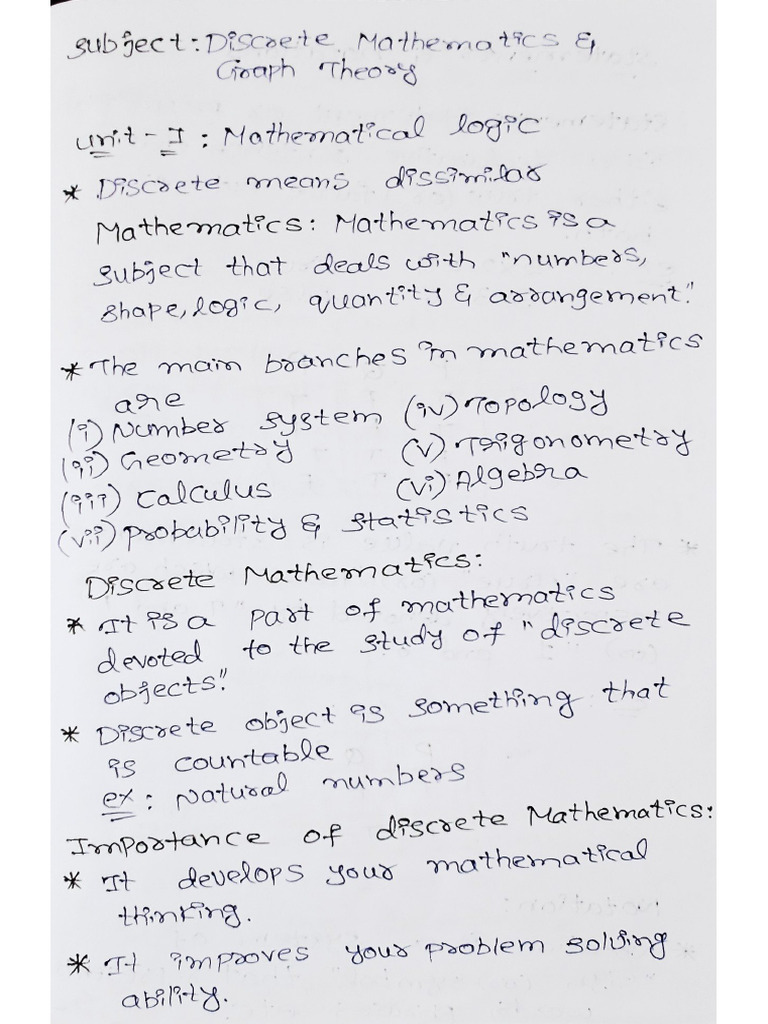 Subject: Discrete Mathematics &
Graph Theory
Unit - I : Mathematical logic
* Discrete means dissimilar
Mathematics: Mathematics is a
subject that deals with "numbers,
shape, logic, quantity & arrangement."
* The main branches in mathematics
are
(i) Number system (iv) Topology
(ii) Geometry (v) Trigonometry
(iii) Calculus (vi) Algebra
(vii) Probability & statistics
Discrete Mathematics:
* It is a part of mathematics
devoted to the study of "discrete
objects."
* Discrete object is something that
is countable
ex : Natural numbers
Importance of discrete Mathematics:
* It develops your mathematical
thinking.
* It improves your problem solving
ability.